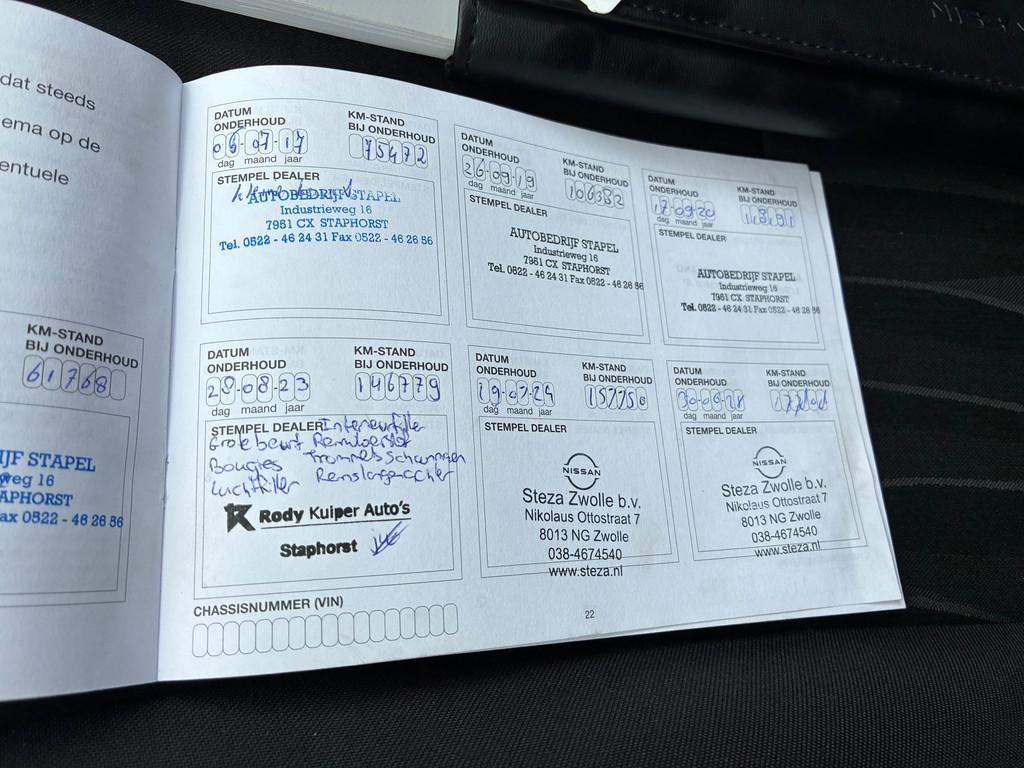 dat steeds
ema op de
entuele
KM-STAND
BIJ ONDERHOUD
61768
IJF STAPEL
weg 16
APHORST
ax 0522 - 46 26 56
DATUM
ONDERHOUD
06-07-17
dag maand jaar
KM-STAND
BIJ ONDERHOUD
75472
STEMPEL DEALER
AUTOBEDRIJF STAPEL
Industrieweg 16
7951 CX STAPHORST
Tel. 0522 - 46 24 31 Fax 0522 - 46 26 56
DATUM
ONDERHOUD
26-09-19
dag maand jaar
KM-STAND
BIJ ONDERHOUD
106332
STEMPEL DEALER
AUTOBEDRIJF STAPEL
Industrieweg 16
7951 CX STAPHORST
Tel. 0522 - 46 24 31 Fax 0522 - 46 26 56
DATUM
ONDERHOUD
17-09-20
dag maand jaar
KM-STAND
BIJ ONDERHOUD
STEMPEL DEALER
AUTOBEDRIJF STAPEL
Industrieweg 16
7951 CX STAPHORST
Tel. 0522 - 46 24 31 Fax 0522 - 46 26 56
DATUM
ONDERHOUD
28-08-23
dag maand jaar
KM-STAND
BIJ ONDERHOUD
146779
STEMPEL DEALER Interieurfilter
Grote beurt Remvloeistof
Bougies Trommels schoonmaken
Luchtfilter
Rody Kuiper Auto's
Staphorst
DATUM
ONDERHOUD
19-07-24
dag maand jaar
KM-STAND
BIJ ONDERHOUD
157750
STEMPEL DEALER
NISSAN
Steza Zwolle b.v.
Nikolaus Ottostraat 7
8013 NG Zwolle
038-4674540
www.steza.nl
DATUM
ONDERHOUD
dag maand jaar
KM-STAND
BIJ ONDERHOUD
STEMPEL DEALER
NISSAN
Steza Zwolle b.v.
Nikolaus Ottostraat 7
8013 NG Zwolle
038-4674540
www.steza.nl
CHASSISNUMMER (VIN)
22
NISSAN